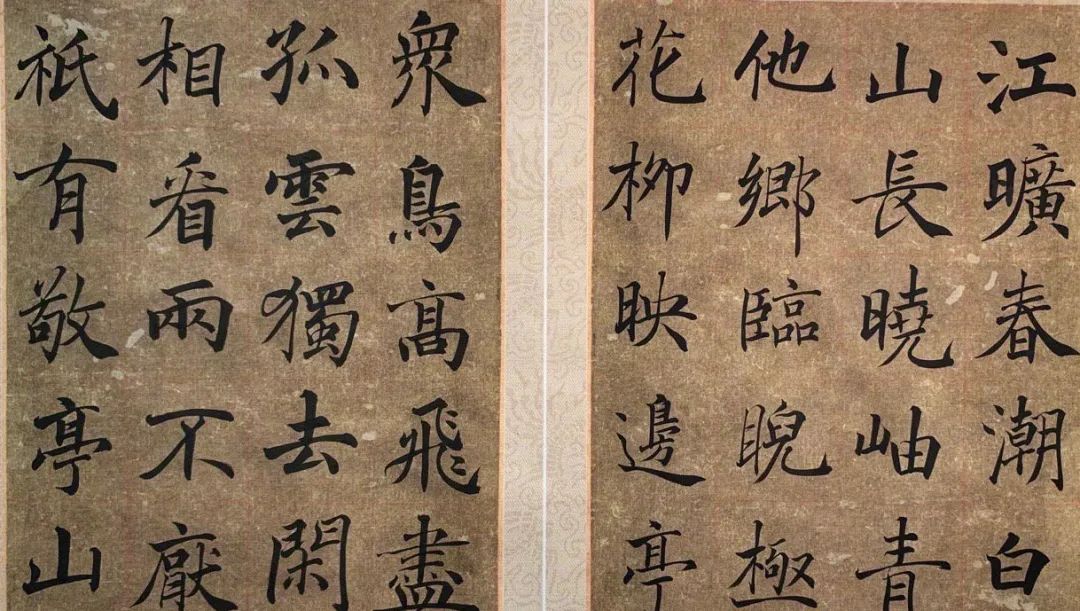 江曠春潮白
山長曉岫青
他鄉臨睨極
花柳映邊亭
衆鳥高飛盡
孤雲獨去閑
相看兩不厭
祇有敬亭山